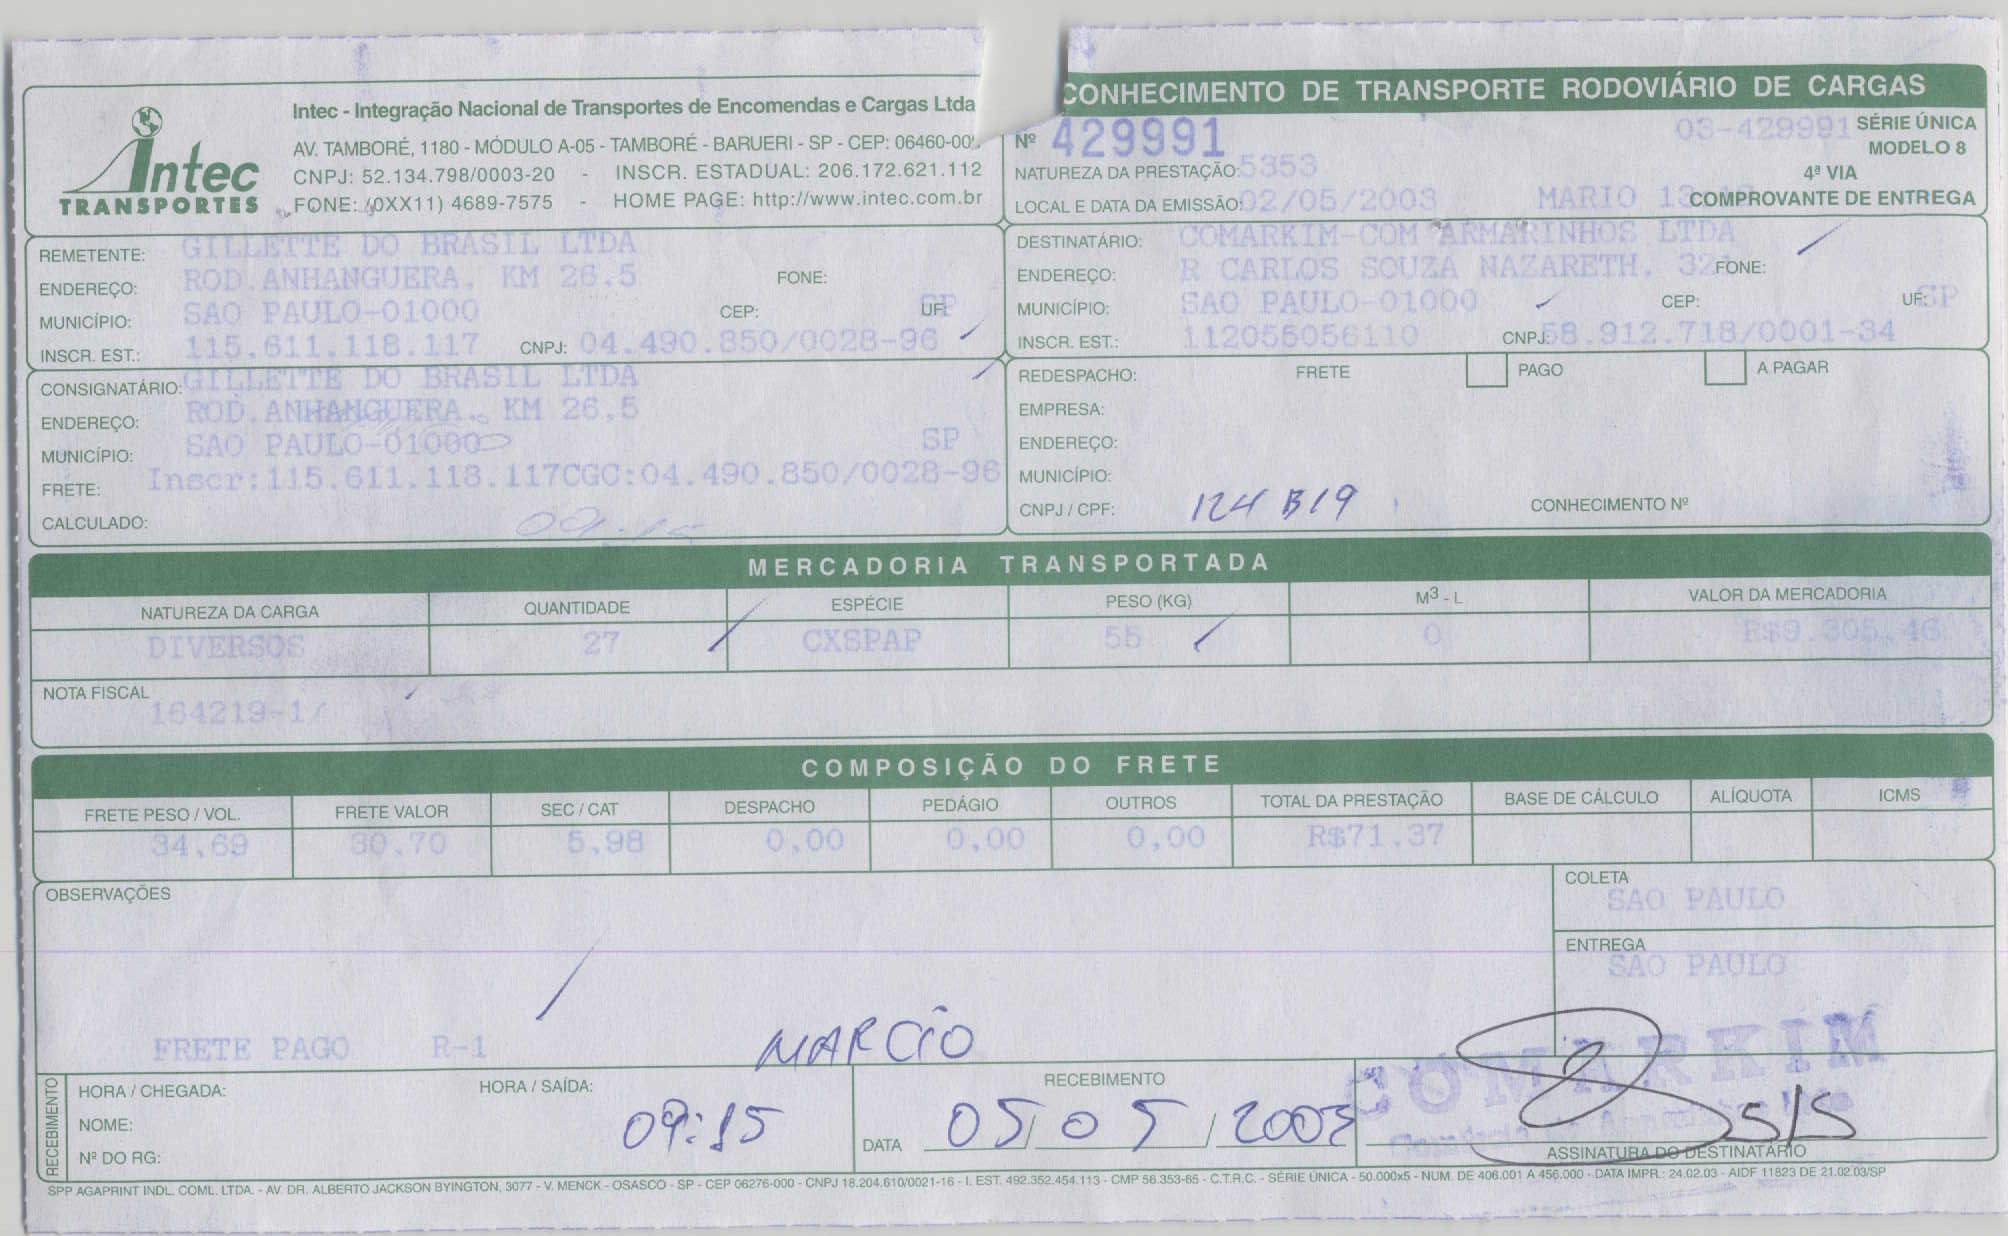 Intec
TRANSPORTES
Intec - Integração Nacional de Transportes de Encomendas e Cargas Ltda
AV. TAMBORÉ, 1180 - MÓDULO A-05 - TAMBORÉ - BARUERI - SP - CEP: 06460-00
CNPJ: 52.134.798/0003-20 - INSCR. ESTADUAL: 206.172.621.112
FONE: (0XX11) 4689-7575 - HOME PAGE: http://www.intec.com.br
CONHECIMENTO DE TRANSPORTE RODOVIÁRIO DE CARGAS
Nº 429991 03-429991 SÉRIE ÚNICA
MODELO 8
NATUREZA DA PRESTAÇÃO: 5353 4ª VIA
LOCAL E DATA DA EMISSÃO: 02/05/2003 MARIO COMPROVANTE DE ENTREGA
REMETENTE: GILLETTE DO BRASIL LTDA
ENDEREÇO: ROD.ANHANGUERA, KM 26.5 FONE:
MUNICÍPIO: SAO PAULO-01000 CEP: UF: SP
INSCR. EST.: 115.611.118.117 CNPJ: 04.490.850/0028-96
DESTINATÁRIO: COMARKIM-COM ARMARINHOS LTDA
ENDEREÇO: R CARLOS SOUZA NAZARETH, FONE:
MUNICÍPIO: SAO PAULO-01000 CEP: UF: SP
INSCR. EST.: 112055056110 CNPJ: 58.912.718/0001-34
CONSIGNATÁRIO: GILLETTE DO BRASIL LTDA
ENDEREÇO: ROD.ANHANGUERA, KM 26.5
MUNICÍPIO: SAO PAULO-01000 SP
FRETE: Inscr:115.611.118.117CGC:04.490.850/0028-96
CALCULADO: 09:15
REDESPACHO: FRETE PAGO A PAGAR
EMPRESA:
ENDEREÇO:
MUNICÍPIO:
CNPJ / CPF: 124 B19 CONHECIMENTO Nº
MERCADORIA TRANSPORTADA
NATUREZA DA CARGA QUANTIDADE ESPÉCIE PESO (KG) M3 - L VALOR DA MERCADORIA
DIVERSOS 27 CXSPAP 55 0 R$9.305,46
NOTA FISCAL
164219-1/
COMPOSIÇÃO DO FRETE
FRETE PESO / VOL. FRETE VALOR SEC / CAT DESPACHO PEDÁGIO OUTROS TOTAL DA PRESTAÇÃO BASE DE CÁLCULO ALÍQUOTA ICMS
34,69 30,70 5,98 0,00 0,00 0,00 R$71,37
OBSERVAÇÕES
COLETA
SAO PAULO
ENTREGA
SAO PAULO
FRETE PAGO R-1
MARCIO
COMARKIM
RECEBIMENTO
HORA / CHEGADA: HORA / SAÍDA: 09:15
NOME:
Nº DO RG:
RECEBIMENTO
DATA 05/05/2003
ASSINATURA DO DESTINATÁRIO
SPP AGAPRINT INDL. COML. LTDA. - AV. DR. ALBERTO JACKSON BYINGTON, 3077 - V. MENCK - OSASCO - SP - CEP 06276-000 - CNPJ 18.204.610/0021-16 - I. EST. 492.352.454.113 - CMP 56.353-65 - C.T.R.C. - SÉRIE ÚNICA - 50.000x5 - NUM. DE 406.001 A 456.000 - DATA IMPR.: 24.02.03 - AIDF 11823 DE 21.02.03/SP